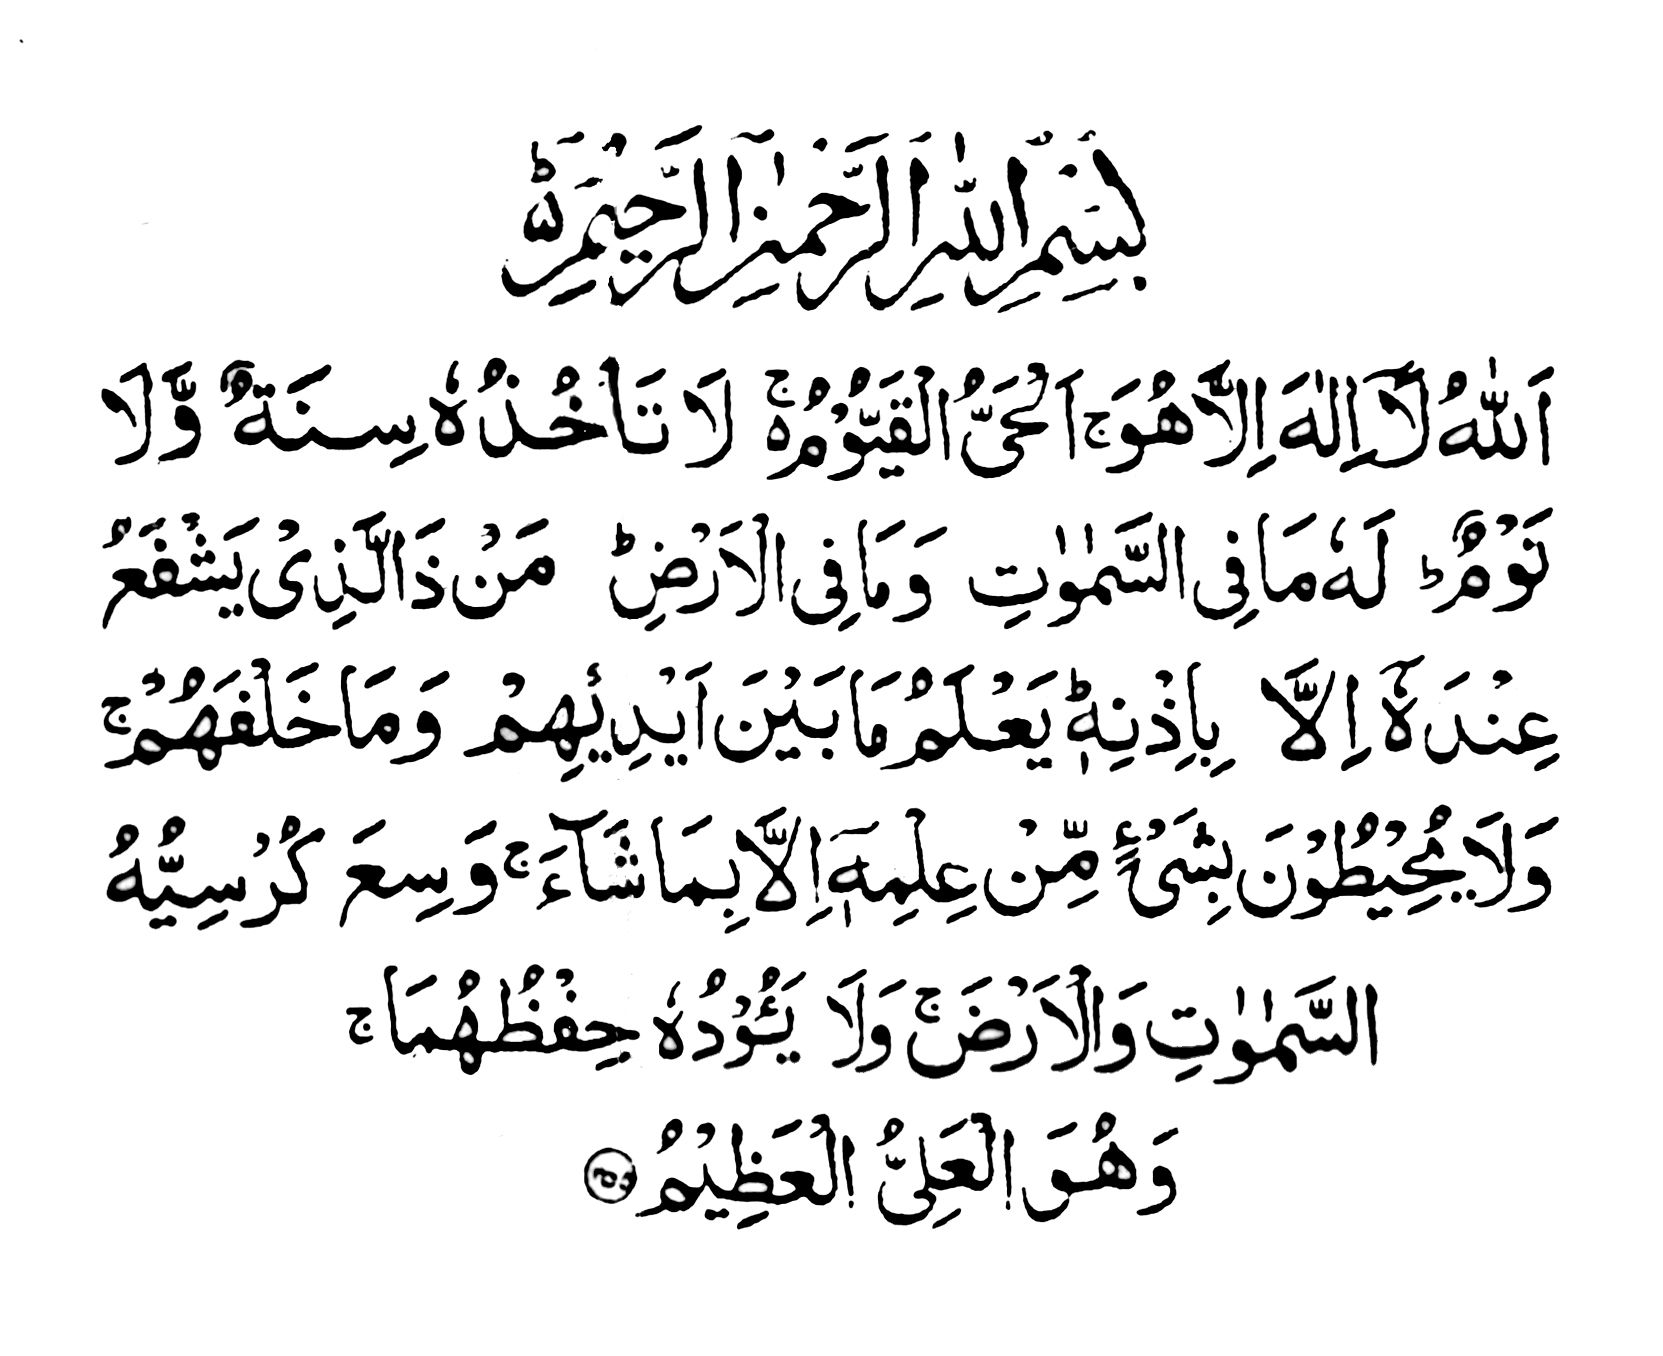 بِسْمِ اللّٰهِ الرَّحْمٰنِ الرَّحِيْمِ ۝ؕ
اَللّٰهُ لَاۤ اِلٰهَ اِلَّا هُوَ ۚ اَلْحَیُّ الْقَیُّوْمُ ۚ۬ لَا تَاْخُذُهٗ سِنَةٌ وَّلَا
نَوْمٌ ؕ لَهٗ مَا فِی السَّمٰوٰتِ وَمَا فِی الْاَرْضِ ؕ مَنْ ذَا الَّذِیْ یَشْفَعُ
عِنْدَهٗۤ اِلَّا بِاِذْنِهٖ ؕ یَعْلَمُ مَا بَیْنَ اَیْدِیْهِمْ وَمَا خَلْفَهُمْ ۚ
وَلَا یُحِیْطُوْنَ بِشَیْءٍ مِّنْ عِلْمِهٖۤ اِلَّا بِمَا شَآءَ ۚ وَسِعَ كُرْسِیُّهُ
السَّمٰوٰتِ وَالْاَرْضَ ۚ وَلَا یَـُٔوْدُهٗ حِفْظُهُمَا ۚ
وَهُوَ الْعَلِیُّ الْعَظِیْمُ